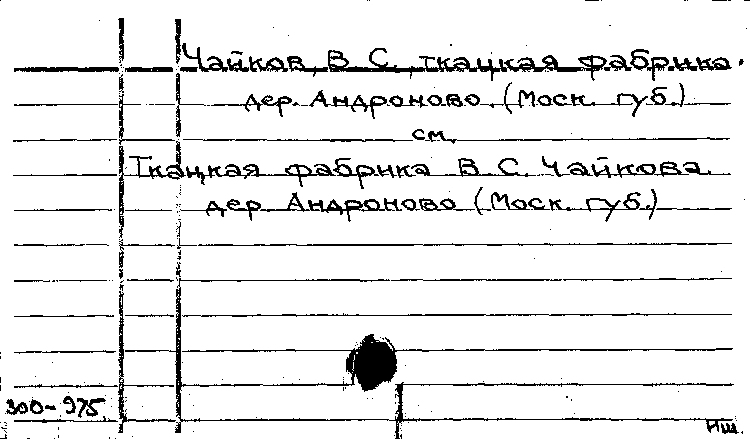 Чайков, В. С., ткацкая фабрика.
дер. Андроново. (Моск. губ.)
см.
Ткацкая фабрика В. С. Чайкова.
дер. Андроново (Моск. губ.)
300-975.
Нш.